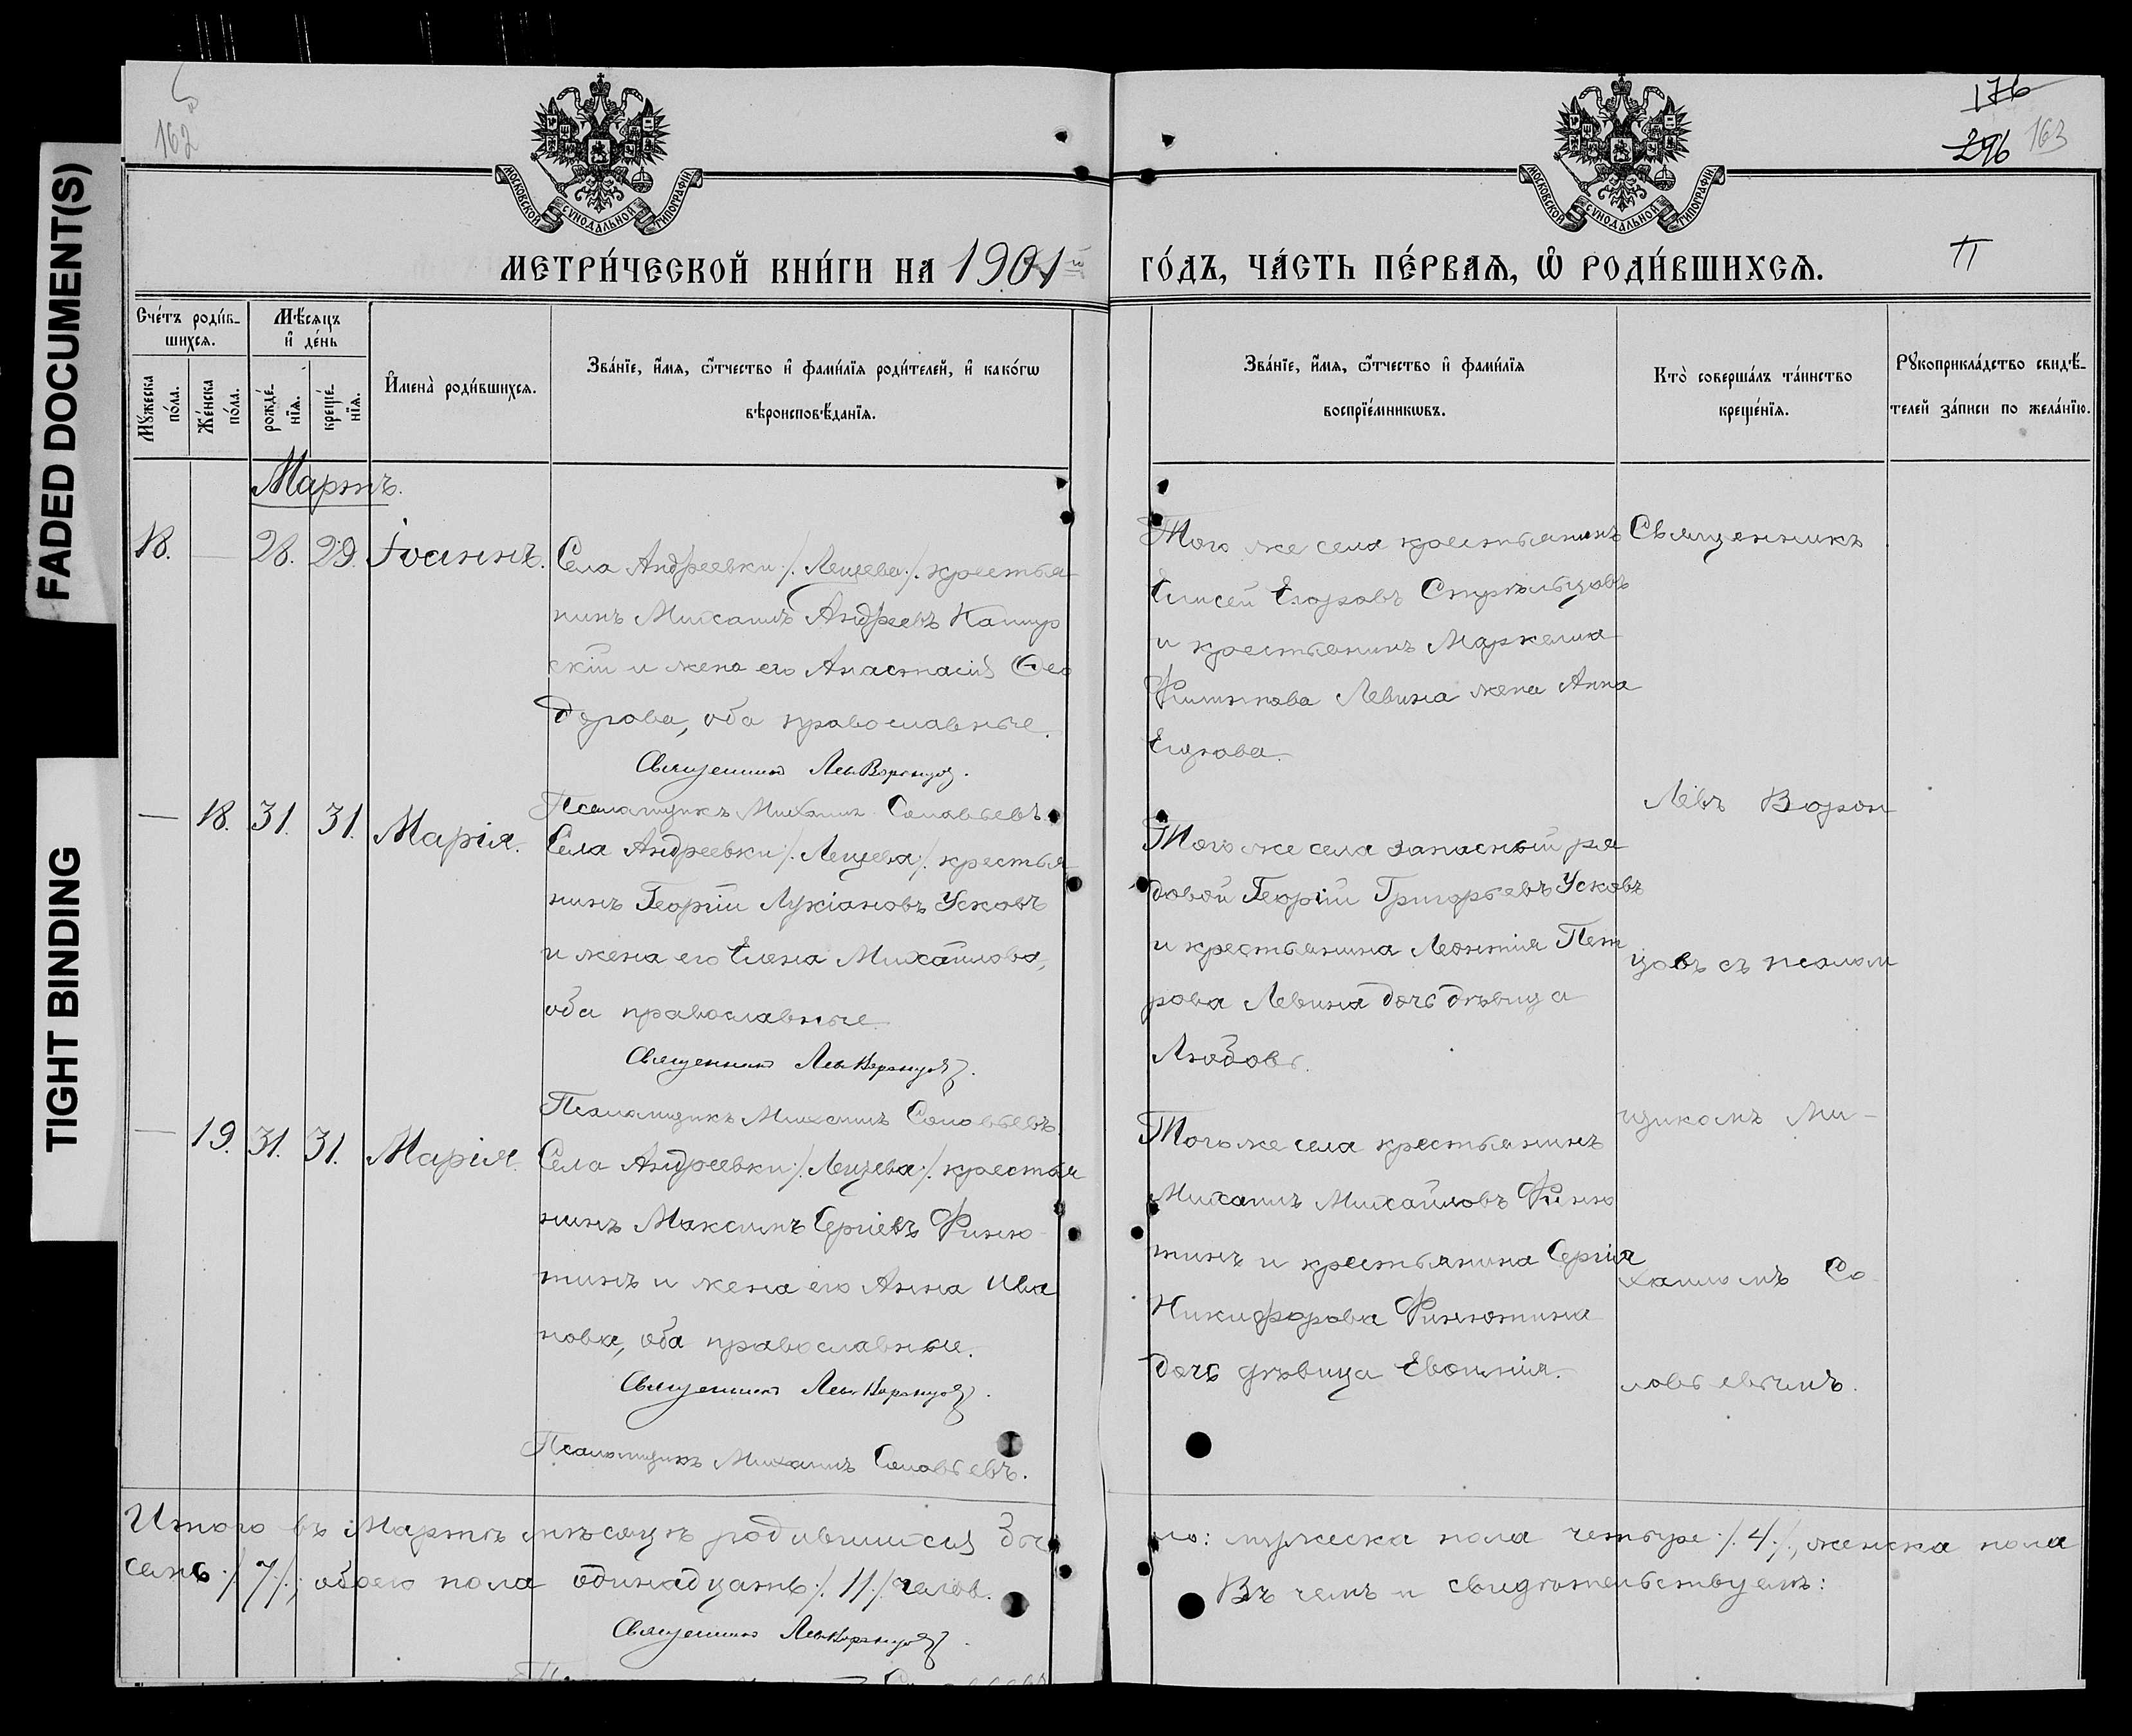 FADED DOCUMENT(S)
TIGHT BINDING
162
176
296 163
МОСКОВСКОЙ СѴНОДАЛЬНОЙ ТИПОГРАФІИ
МОСКОВСКОЙ СѴНОДАЛЬНОЙ ТИПОГРАФІИ
МЕТРИ́ЧЕСКОЙ КНИ́ГИ НА 1901й
ГО́ДЪ, ЧА́СТЬ ПЕ́РВАѦ, Ѡ҆ РОДИ́ВШИХСѦ.
Сче́тъ роди́в-
шихсѧ.
Мѣ́сѧцъ
и҆ де́нь
Мꙋ́жеска
по́ла.
Же́нска
по́ла.
рожде́-
нїѧ.
креще́-
нїѧ.
И҆мена̀ роди́вшихсѧ.
Зва́нїе, и҆́мѧ, ѻ҆́тчество и҆ фами́лїѧ роди́телей, и҆ како́гѡ
вѣроисповѣ́данїѧ.
Зва́нїе, и҆́мѧ, ѻ҆́тчество и҆ фами́лїѧ
воспрїе́мникѡвъ.
Кто̀ соверша́лъ та́инство
креще́нїѧ.
Рꙋкоприкла́дство свидѣ́-
телей за́писи по жела́нїю.
Мартъ.
18. — 28. 29. Іоаннъ.
Села Андреевки /. Лещева /. крестья
нинъ Михаилъ Андреевъ
скій и жена его Анастасія Ѳео
дорова, оба православные.
Священникъ Левъ Воронцовъ.
Псаломщикъ Михаилъ Соловьевъ.
Того же села крестьянинъ
Елисей Егоровъ Стрѣльцовъ
и крестьянина Маркелла
Филиппова Левина жена Анна
Егорова.
— 18. 31. 31. Марія.
Села Андреевки /. Лещева /. крестья
нинъ Георгій Лукіановъ Усковъ
и жена его Елена Михайлова,
оба православные.
Священникъ Левъ Воронцовъ.
Псаломщикъ Михаилъ Соловьевъ.
Того же села запасный ря
довой Георгій Григорьевъ Усковъ
и крестьянина Леонтія Пет
рова Левина дочь дѣвица
Любовь.
— 19. 31. 31. Марія.
Села Андреевки /. Лещева /. крестья
нинъ Максимъ Сергіевъ Финю
тинъ и жена его Анна Ива
нова, оба православные.
Священникъ Левъ Воронцовъ.
Псаломщикъ Михаилъ Соловьевъ.
Того же села крестьянинъ
Михаилъ Михайловъ Финю
тинъ и крестьянина Сергія
Никифорова Финютина
дочь дѣвица
Священникъ
Левъ Ворон
цовъ съ псалом
щикомъ Ми-
хаиломъ Со
ловьевымъ.
Итого въ Мартѣ мѣсяцѣ родившихся бы
ло: мужеска пола четыре /. 4 /., женска пола
семь /. 7 /., обоего пола одинадцать /. 11 /. челов.
Въ чемъ и свидѣтельствуемъ:
Священникъ Левъ Воронцовъ.